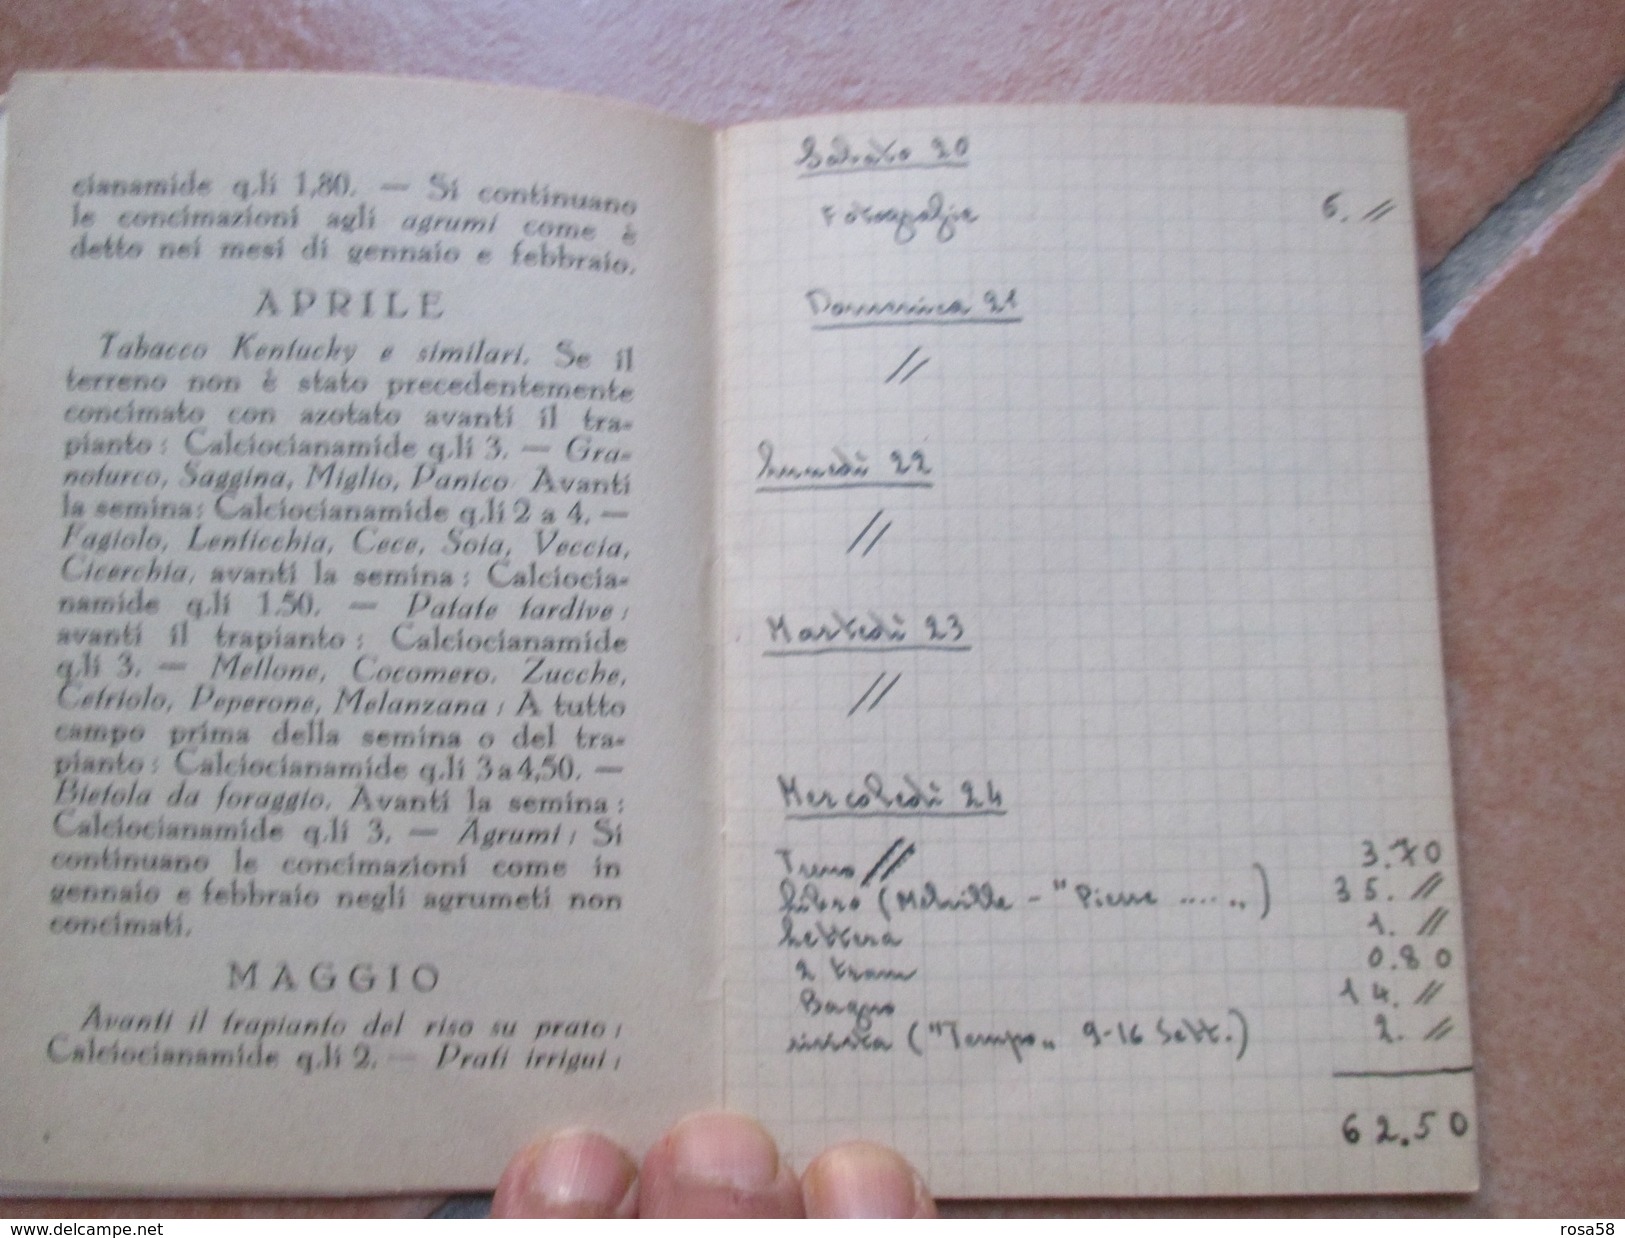 cianamide q.li 1,80. — Si continuano
le concimazioni agli agrumi come è
detto nei mesi di gennaio e febbraio.
APRILE
Tabacco Kentucky e similari. Se il
terreno non è stato precedentemente
concimato con azotato avanti il tra-
pianto: Calciocianamide q.li 3. — Gra-
noturco, Saggina, Miglio, Panico Avanti
la semina: Calciocianamide q.li 2 a 4. —
Fagiolo, Lenticchia, Cece, Soia, Veccia,
Cicerchia, avanti la semina: Calciocia-
namide q.li 1.50. — Patate tardive:
avanti il trapianto: Calciocianamide
q.li 3. — Mellone, Cocomero, Zucche,
Cetriolo, Peperone, Melanzana: A tutto
campo prima della semina o del tra-
pianto: Calciocianamide q.li 3 a 4,50. —
Bietola da foraggio. Avanti la semina:
Calciocianamide q.li 3. — Agrumi: Si
continuano le concimazioni come in
gennaio e febbraio negli agrumeti non
concimati.
MAGGIO
Avanti il trapianto del riso su prato:
Calciocianamide q.li 2. — Prati irrigui:
Sabato 20
Fotografie 6. //
Domenica 21
//
Lunedì 22
//
Martedì 23
//
Mercoledì 24
Treno // 3.70
Libro (Melville - "Pierre ..... „) 35. //
Lettera 1. //
2 tram 0.80
Bagno 14. //
rivista ("Tempo„ 9-16 Sett.) 2. //
62.50
www.delcampe.net
rosa58